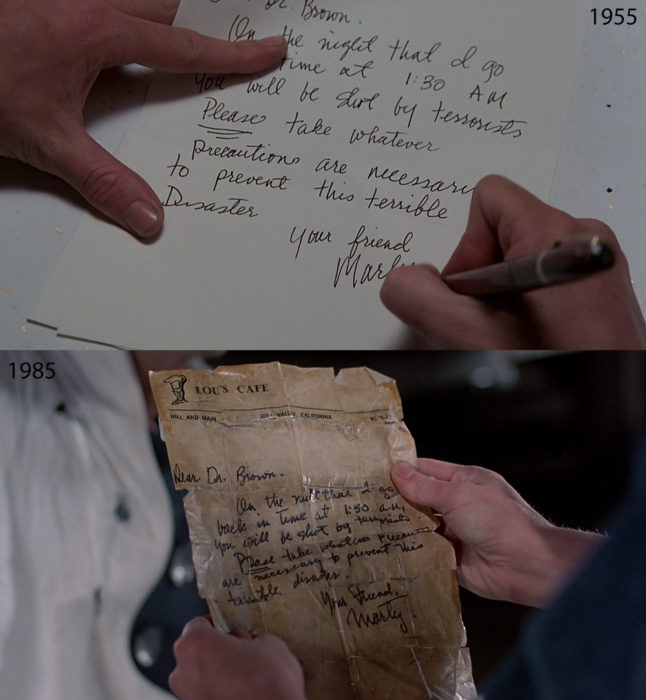 1955
Dr. Brown.
On the night that I go
time at 1:30 AM
you will be shot by terrorists
Please take whatever
precautions are necessary
to prevent this terrible
Disaster
your friend
Marty
1985
LOU'S CAFE
HILL AND MAIN HILL VALLEY, CALIFORNIA
Dear Dr. Brown.
On the night that I go
back in time at 1:30 A.M.,
you will be shot by terrorists.
Please take whatever precautions
are necessary to prevent this
terrible disaster.
Your Friend,
Marty.